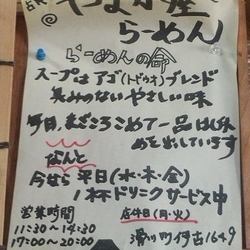 らーめん
らーめんの命
スープは アゴ(トビウオ)ブレンド
やさしい味
毎日、まごころこめて一品
を出しています
なんと
今なら 平日(水・木・金)
1杯ドリンクサービス中
営業時間
11:30~14:30
17:00~20:00
店休日(月・火)
滑川町伊古1649